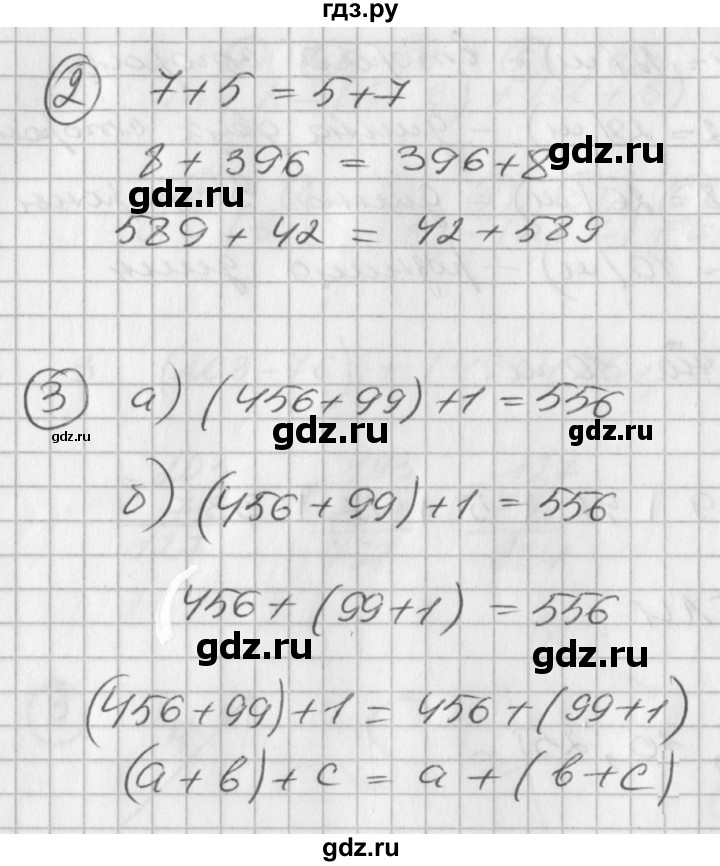 гдз.ру
② 7 + 5 = 5 + 7
8 + 396 = 396 + 8
gdz.ru
gdz.ru
589 + 42 = 42 + 589
③ а) (456 + 99) + 1 = 556
gdz.ru
gdz.ru
gdz.ru
б) (456 + 99) + 1 = 556
456 + (99 + 1) = 556
gdz.ru
gdz.ru
(456 + 99) + 1 = 456 + (99 + 1)
(а + в) + с = а + (в + с)
gdz.ru
gdz.ru